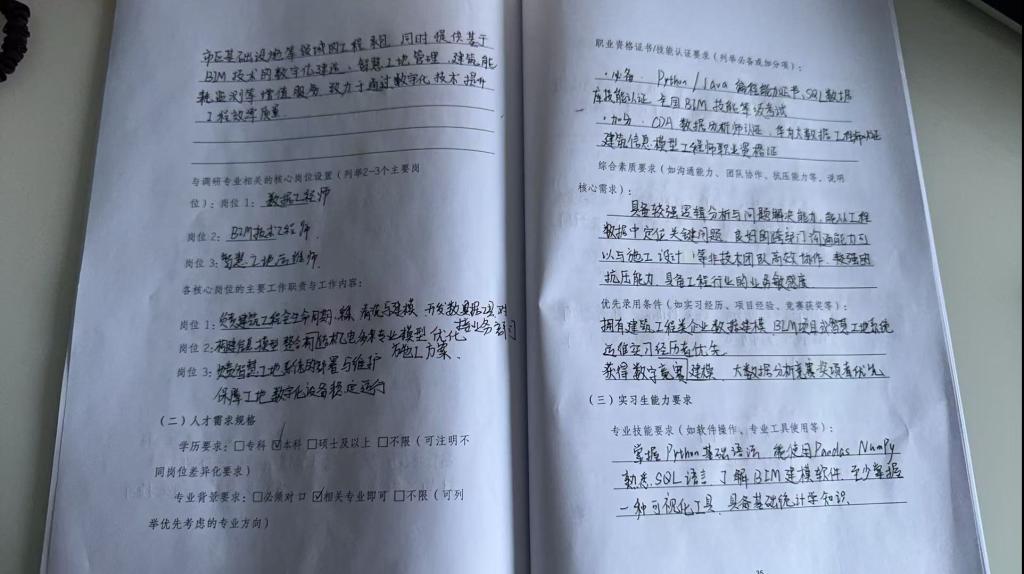 市区基础设施等领域的工程承包 同时提供基于
BIM技术的数字化建造、智慧工地管理、建筑能
耗监测等增值服务 致力于通过数字化技术提升
工程效率质量
与调研专业相关的核心岗位设置（列举2-3个主要岗
位）：岗位 1：数据工程师
岗位 2：BIM技术工程师
岗位 3：智慧工地运维师
各核心岗位的主要工作职责与工作内容：
岗位 1：负责建筑工程全生命周期 清洗与建模 开发数据 对
接业务部门
岗位 2：构建信息模型 整合 机电多专业模型 优化
施工方案
岗位 3：负责智慧工地系统的部署与维护
保障工地数字化设备稳定运行
（二）人才需求规格
学历要求：□专科 ☑本科 □硕士及以上 □不限（可注明不
同岗位差异化要求）
专业背景要求：□必须对口 ☑相关专业即可 □不限（可列
举优先考虑的专业方向）
职业资格证书/技能认证要求（列举必备或加分项）：
·必备：Python/Java 编程能力证书、SQL数据
库技能认证 全国BIM技能等级考试
·加分：CDA数据分析师认证、华为大数据工程师认证
建筑信息模型工程师职业资格证
综合素质要求（如沟通能力、团队协作、抗压能力等，说明
核心需求）：
具备较强逻辑分析与问题解决能力，能从工程
数据中定位关键问题 良好的跨部门沟通能力可
以与施工 设计 等非技术团队高效协作 较强的
抗压能力 具备工程行业的业务敏感度
优先录用条件（如实习经历、项目经验、竞赛获奖等）：
拥有建筑工程类企业数据建模 BIM项目或智慧工地系统
运维实习经历者优先
获得数学竞赛建模、大数据分析竞赛奖项者优先
（三）实习生能力要求
专业技能要求（如软件操作、专业工具使用等）：
掌握Python基础语法 能使用Pandas NumPy
熟悉SQL语言 了解BIM建模软件 至少掌握
一种可视化工具 具备基础统计学知识